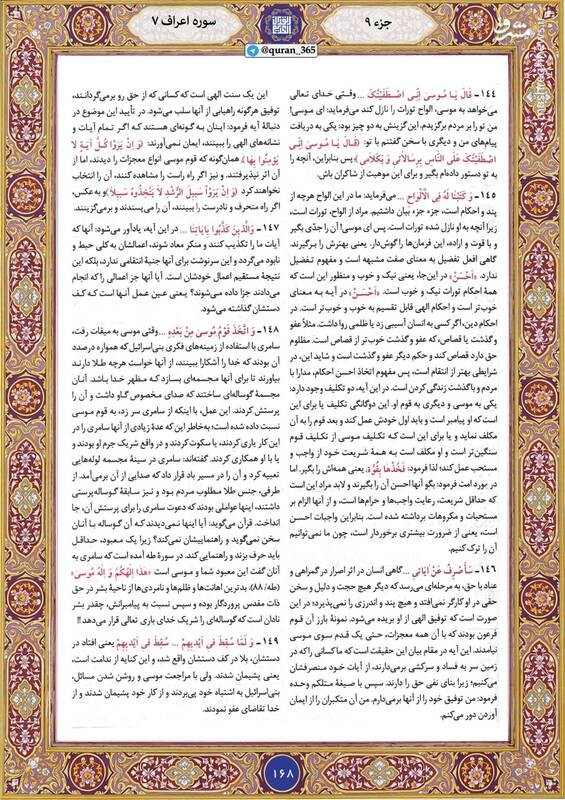 جزء ۹
سوره اعراف ۷
@quran_365
۱۴۴- قَالَ يَا مُوسَىٰ إِنِّى اصْطَفَيْتُكَ ... وقتی خدای تعالی
می‌خواهد به موسی، الواح تورات را نازل کند می‌فرماید: ای موسی!
من تو را بر مردم برگزیدم. این گزینش به دو چیز بود: یکی به دریافت
پیام‌های من و دیگری با سخن گفتنم با تو: (قَالَ يَا مُوسَىٰ إِنِّى
اصْطَفَيْتُكَ عَلَى النَّاسِ بِرِسَالَاتِى وَبِكَلَامِى) پس بنابراین، آنچه را
به تو دستور داده‌ام بگیر و برای این موهبت از شاکران باش.
۱۴۵- وَ كَتَبْنَا لَهُ فِى الْأَلْوَاحِ ... می‌فرماید: ما در این الواح هرچه از
پند و احکام است، جزء جزء بیان داشتیم. مراد از الواح، تورات است،
زیرا آنچه به او نازل شده تورات است. پس ای موسی! آن را جدّی بگیر
و با قوت و اراده، این فرمان‌ها را گوش‌دار. یعنی بهترش را برگیرند.
گاهی افعل تفضیل به معنای صفت مشبهه است و مفهوم تفضیل
ندارد. «أَحْسَن» در این‌جا، یعنی نیک و خوب و منظور این است که
همهٔ احکام تورات نیک و خوب است. «أَحْسَن» در آیه به معنای
خوب‌تر است و احکام الهی قابل تقسیم به خوب و خوب‌تر است. در
احکام دین، اگر کسی به انسان آسیبی زد یا ظلمی روا داشت. مثلاً عفو
و گذشت یا قصاص، که عفو و گذشت خوب‌تر از قصاص است. مظلوم
حق دارد قصاص کند و حکم دیگر عفو و گذشت است و شاید این، در
شرایطی بهتر از انتقام است، پس مفهوم اتخاذ احسن احکام، مدارا با
مردم و با گذشت زندگی کردن است. در این آیه، دو تکلیف وجود دارد:
یکی به موسی و دیگری به قوم او. این دوگانگی تکلیف یا برای این
است که او پیامبر است و باید اول خودش عمل کند و بعد قوم را به آن
مکلف نماید و یا برای این است که تکلیف موسی از تکلیف قوم
سنگین‌تر است و او مکلف است به همهٔ شریعت خود از واجب و
مستحب عمل کند؛ لذا فرمود: فَخُذْهَا بِقُوَّةٍ، یعنی همه‌اش را بگیر. اما
در مورد امت فرمود: بگو آنها احسن آن را بگیرند و لابد مراد این است
که حداقل شریعت، رعایت واجب‌ها و حرام‌ها است، و از آنها الزام بر
مستحبات و مکروهات برداشته شده است. بنابراین واجبات احسن
است، یعنی از ضرورت بیشتری برخوردار است، چون ما نمی‌توانیم
آن را ترک کنیم.
۱۴۶- سَأَصْرِفُ عَنْ آيَاتِىَ ... گاهی انسان در اثر اصرار در گمراهی و
عناد با حق، به مرحله‌ای می‌رسد که دیگر هیچ حجت و دلیل و سخن
حقی در او کارگر نمی‌افتد و هیچ پند و اندرزی را نمی‌پذیرد؛ در این
صورت است که توفیق الهی از او بریده می‌شود. نمونهٔ بارز آن قوم
فرعون بودند که با آن همه معجزات، حتی یک قدم سوی موسی
نیامدند. این آیه در مقام بیان این حقیقت است که ما کسانی را که در
زمین سر به فساد و سرکشی برمی‌دارند، از آیات خود منصرفشان
می‌کنیم؛ زیرا بنای نفی حق را دارند. سپس با صیغهٔ متکلم وحده
فرمود: من توفیق خود را از آنها برمی‌دارم. من آن متکبران را از ایمان
آوردن دور می‌کنم.
این یک سنت الهی است که کسانی که از حق رو برمی‌گردانند،
توفیق هرگونه راهیابی از آنها سلب می‌شود. در تأیید این موضوع در
دنبالهٔ آیه فرمود: اینان به گونه‌ای هستند که اگر تمام آیات و
نشانه‌های الهی را ببینند، ایمان نمی‌آورند: (وَ إِنْ يَرَوْا كُلَّ آيَةٍ لَا
يُؤْمِنُوا بِهَا) همان‌گونه که قوم موسی انواع معجزات را دیدند، اما از
آن اثر نپذیرفتند. و نیز اگر راه راست را مشاهده کنند، آن را انتخاب
نخواهند کرد (وَ إِنْ يَرَوْا سَبِيلَ الرُّشْدِ لَا يَتَّخِذُوهُ سَبِيلًا) و به عکس،
اگر راه منحرف و نادرست را ببینند، آن را می‌پسندند و برمی‌گزینند.
۱۴۷- وَالَّذِينَ كَذَّبُوا بِآيَاتِنَا ... در این آیه، یادآور می‌شود: آنها که
آیات ما را تکذیب کنند و منکر معاد شوند، اعمالشان به کلی حبط و
نابود می‌گردد و این سرنوشت برای آنها جنبهٔ انتقامی ندارد، بلکه این
نتیجهٔ مستقیم اعمال خودشان است. آیا آنها جز اعمالی را که انجام
می‌دادند جزا داده می‌شوند؟ یعنی عین عمل آنها است که کف
دستشان گذاشته می‌شود.
۱۴۸- وَ اتَّخَذَ قَوْمُ مُوسَىٰ مِنْ بَعْدِهِ ... وقتی موسی به میقات رفت،
سامری با استفاده از زمینه‌های فکری بنی‌اسرائیل که همواره درصدد
آن بودند که خدا را آشکارا ببینند، از آنها خواست هرچه طلا دارند
بیاورند تا برای آنها مجسمه‌ای بسازد که مظهر خدا باشد. آنان
مجسمهٔ گوساله‌ای ساختند که صدای مخصوص گاو داشت و آن را
پرستش کردند. این عمل، با اینکه از سامری سر زد، به قوم موسی
نسبت داده شده است؛ به‌خاطر این که عدهٔ زیادی از آنها سامری را در
این کار یاری کردند، یا سکوت کردند و در واقع شریک جرم او بودند و
یا با او همکاری کردند. گفته‌اند: سامری در سینهٔ مجسمه لوله‌هایی
تعبیه کرد و آن را در مسیر باد قرار داد که صدایی از آن برمی‌آمد. از
طرفی، جنس طلا مطلوب مردم بود و نیز سابقهٔ گوساله‌پرستی
داشتند، اینها عواملی بودند که دعوت سامری را برای پرستش آن، جا
انداخت. قرآن می‌گوید: آیا اینها نمی‌دیدند که آن گوساله با آنان
سخن نمی‌گوید و راهنماییشان نمی‌کند؟ زیرا یک معبود، حداقل
باید حرف بزند و راهنمایی کند. در سورهٔ طه آمده است که سامری به
آنان گفت این معبود شما و موسی است «هَٰذَا إِلَٰهُكُمْ وَ إِلَٰهُ مُوسَىٰ»
(طه/ ۸۸). بدترین اهانت‌ها و ظلم‌ها و نامردی‌ها از ناحیهٔ بشر در حق
ذات مقدس پروردگار بوده و سپس نسبت به پیامبرانش، چقدر بشر
نادان است که گوساله‌ای را شریک خدای باری تعالی قرار می‌دهد!!
۱۴۹- وَ لَمَّا سُقِطَ فِى أَيْدِيهِمْ ... سُقِطَ فِى أَيْدِيهِمْ یعنی افتاد در
دستشان، بلا در کف دستشان واقع شد، و این کنایه از ندامت است،
یعنی پشیمان شدند. ولی با مراجعت موسی و روشن شدن مسائل،
بنی‌اسرائیل به اشتباه خود پی‌بردند و از کار خود پشیمان شدند و از
خدا تقاضای عفو نمودند.
۱۶۸